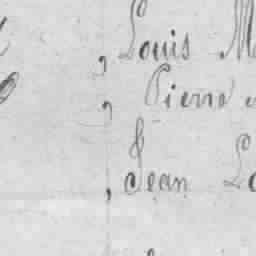 , Louis M
, Pierre
, Jean L